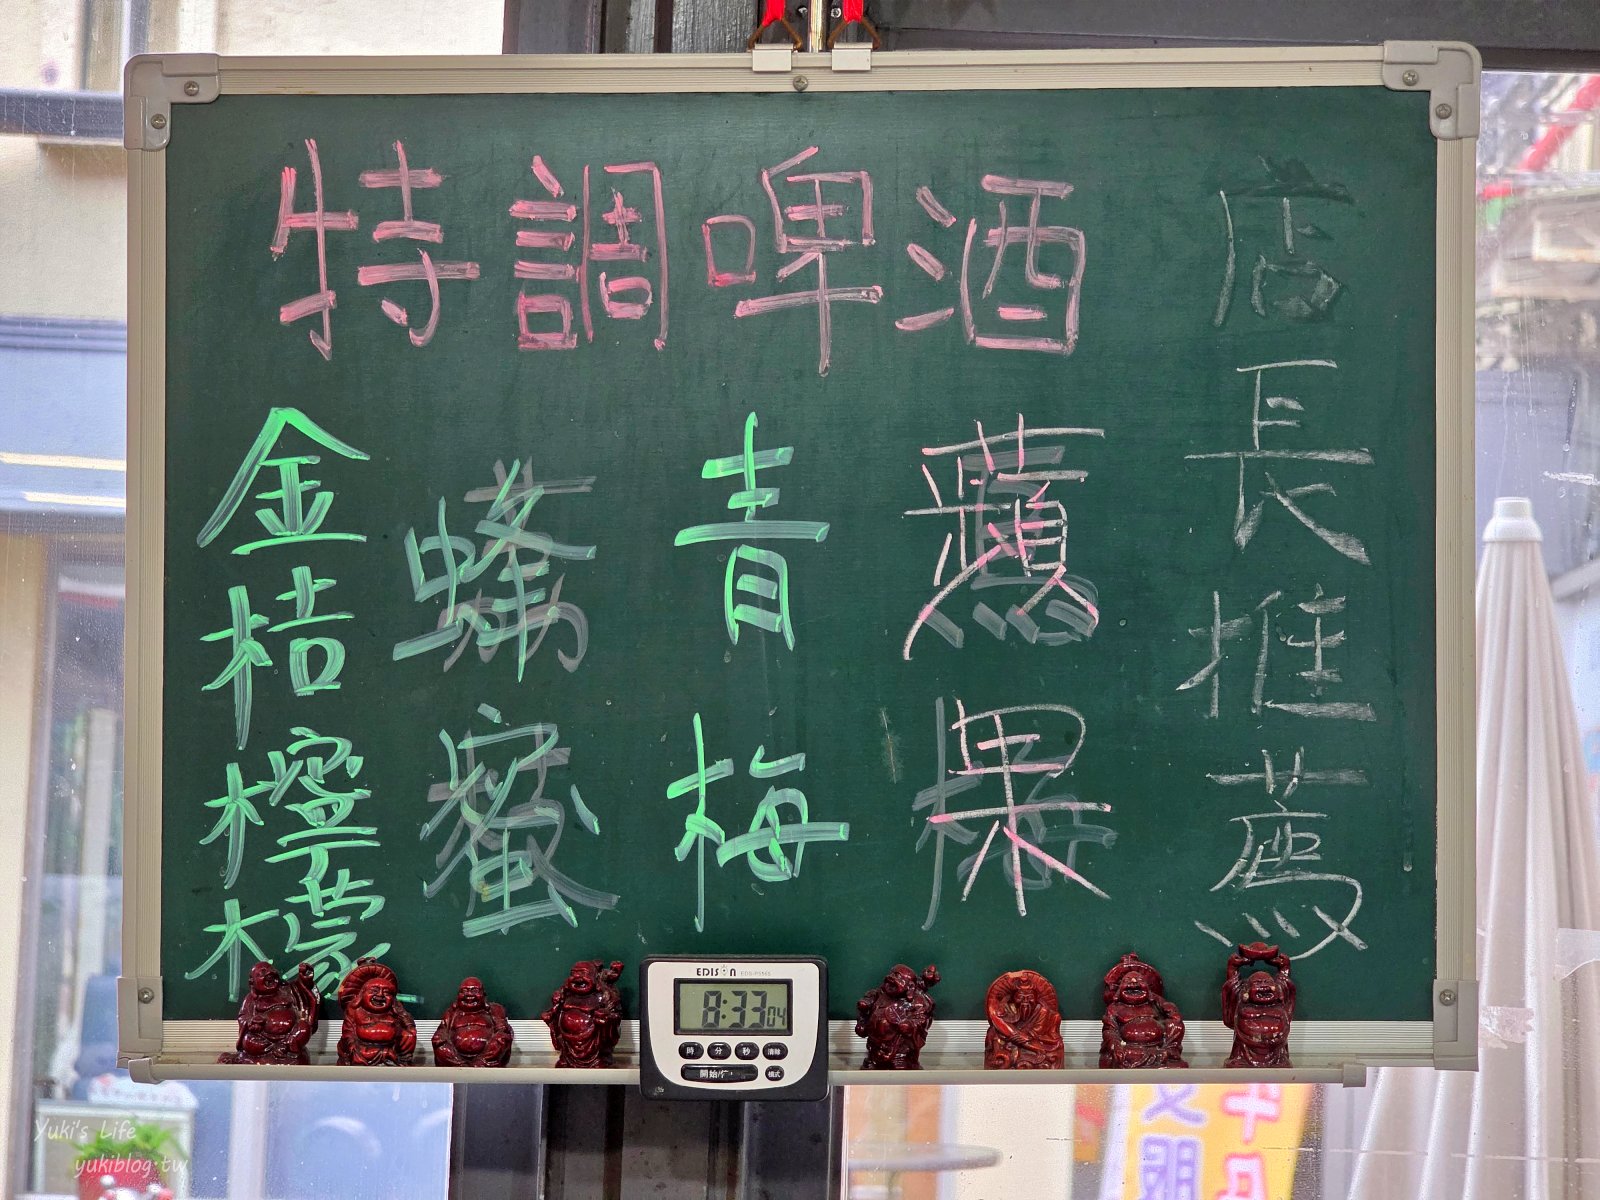 特調啤酒
店長推薦
蘋果
青梅
蜂蜜
金桔檸檬
EDISON
8:33 04
時 分 秒 清除
開始/停
模式
Yuki's Life
yukiblog.tw